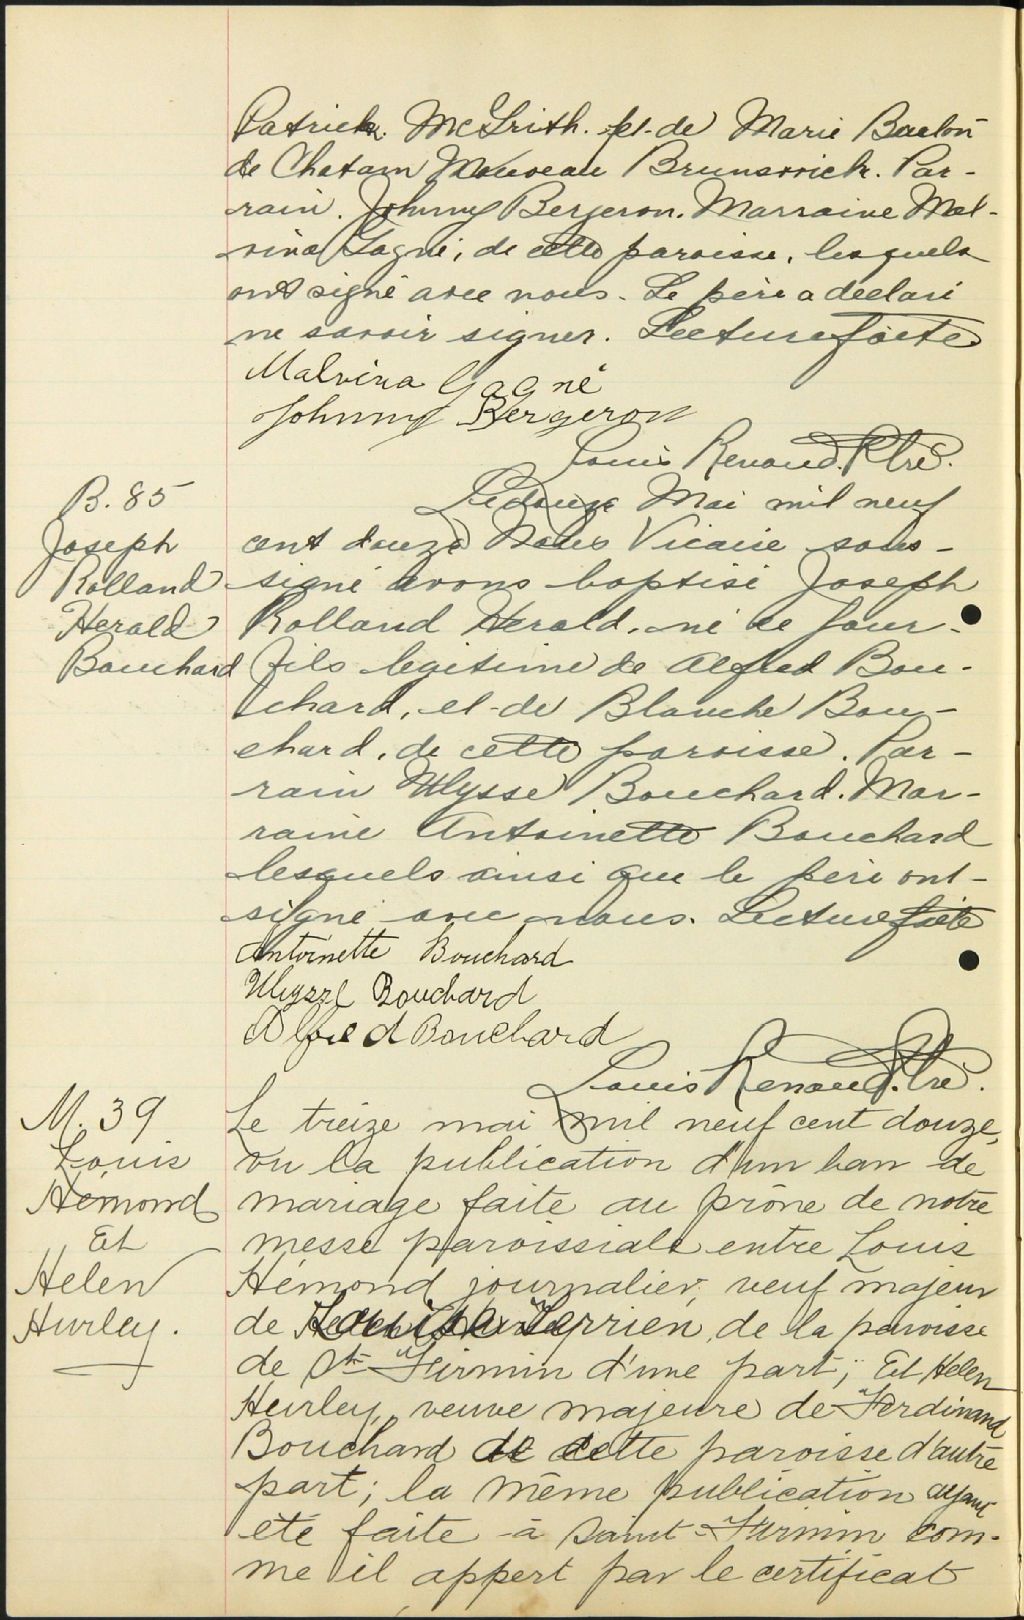 Patrick McGrith. et de Marie
de Chatam Nouveau Brunswick. Par-
rain. Johnny Bergeron. Marraine Mal-
vina Gagné; de cette paroisse, lesquels
ont signé avec nous. Le père a déclaré
ne savoir signer. Lecture faite
Malvina Gagné
Johnny Bergeron
Louis Renaud. Ptre.
B. 85
Joseph
Rolland
Herald
Bouchard
Le douze Mai mil neuf
cent douze Nous Vicaire sous-
signé avons baptisé Joseph
Rolland Herald, né ce jour-
fils légitime de Alfred Bou-
chard, et de Blanche Bou-
chard, de cette paroisse. Par-
rain Ulysse Bouchard. Mar-
raine Antoinette Bouchard
lesquels ainsi que le père ont-
signé avec nous. Lecture faite
Antoinette Bouchard
Ulysse Bouchard
Alfred Bouchard
Louis Renaud. Ptre.
M. 39
Louis
Hémond
Et
Helen
Hurley.
Le treize mai mil neuf cent douze,
vu la publication d'un ban de
mariage faite au prône de notre
messe paroissiale entre Louis
Hémond journalier, veuf majeur
de Louisa Terrien, de la paroisse
de St Firmin d'une part; Et Helen
Hurley, veuve majeure de Ferdinand
Bouchard de cette paroisse d'autre
part; la même publication ayant
été faite à Saint-Firmin com-
me il appert par le certificat